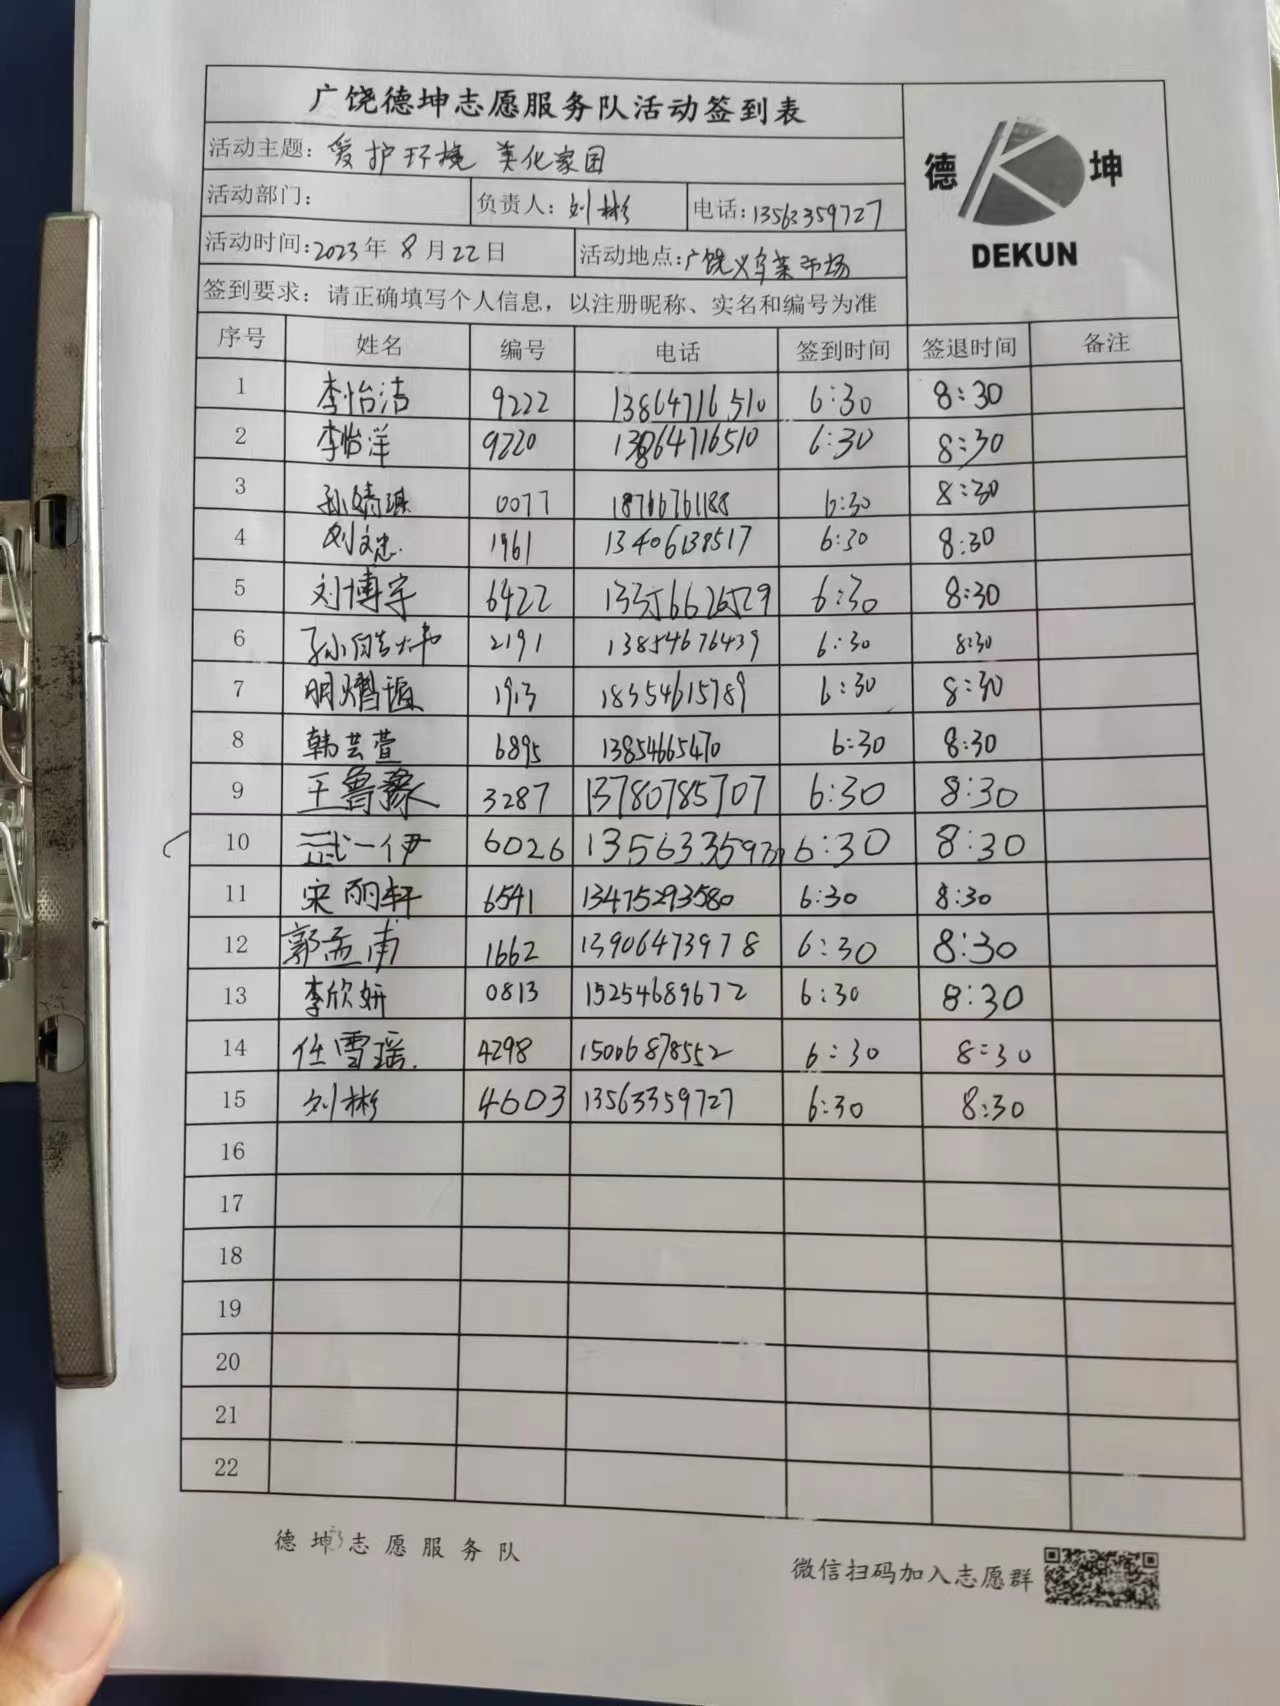 广饶德坤志愿服务队活动签到表
德 坤
DEKUN
活动主题：爱护环境 美化家园
活动部门： 负责人：刘彬 电话：13563359727
活动时间：2023年8月22日 活动地点：广饶义乌菜市场
签到要求：请正确填写个人信息，以注册昵称、实名和编号为准
序号 姓名 编号 电话 签到时间 签退时间 备注
1 李怡洁 9222 13864716510 6:30 8:30
2 李怡洋 9220 13864716510 6:30 8:30
3 孙婧琪 0077 18766761188 6:30 8:30
4 刘文忠 1961 13406138517 6:30 8:30
5 刘博宇 6422 13356626529 6:30 8:30
6 2191 13854676439 6:30 8:30
7 1913 18354615789 6:30 8:30
8 韩芸萱 6895 13854665470 6:30 8:30
9 王鲁豫 3287 13780785707 6:30 8:30
10 武一伊 6026 6:30 8:30
11 宋丽轩 6541 13475293580 6:30 8:30
12 郭孟甫 1662 13906473978 6:30 8:30
13 李欣妍 0813 15254689672 6:30 8:30
14 任雪瑶. 4298 15006878552 6:30 8:30
15 刘彬 4603 13563359727 6:30 8:30
16
17
18
19
20
21
22
德坤志愿服务队
微信扫码加入志愿群